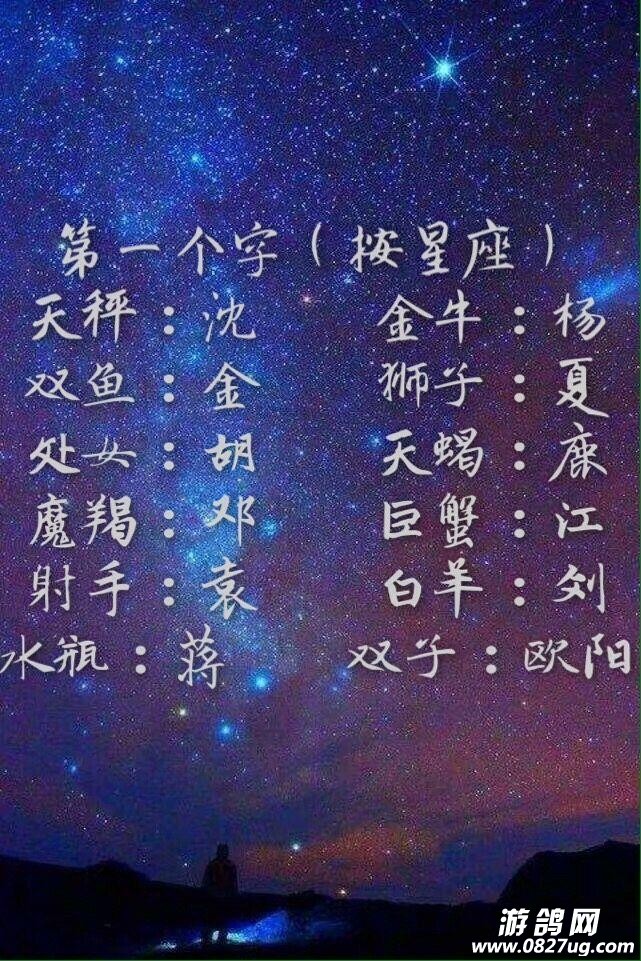 第一个字（按星座）
天秤：沈 金牛：杨
双鱼：金 狮子：夏
处女：胡 天蝎：鹿
魔羯：邓 巨蟹：江
射手：袁 白羊：刘
水瓶：蒋 双子：欧阳
游鸽网
www.0827ug.com